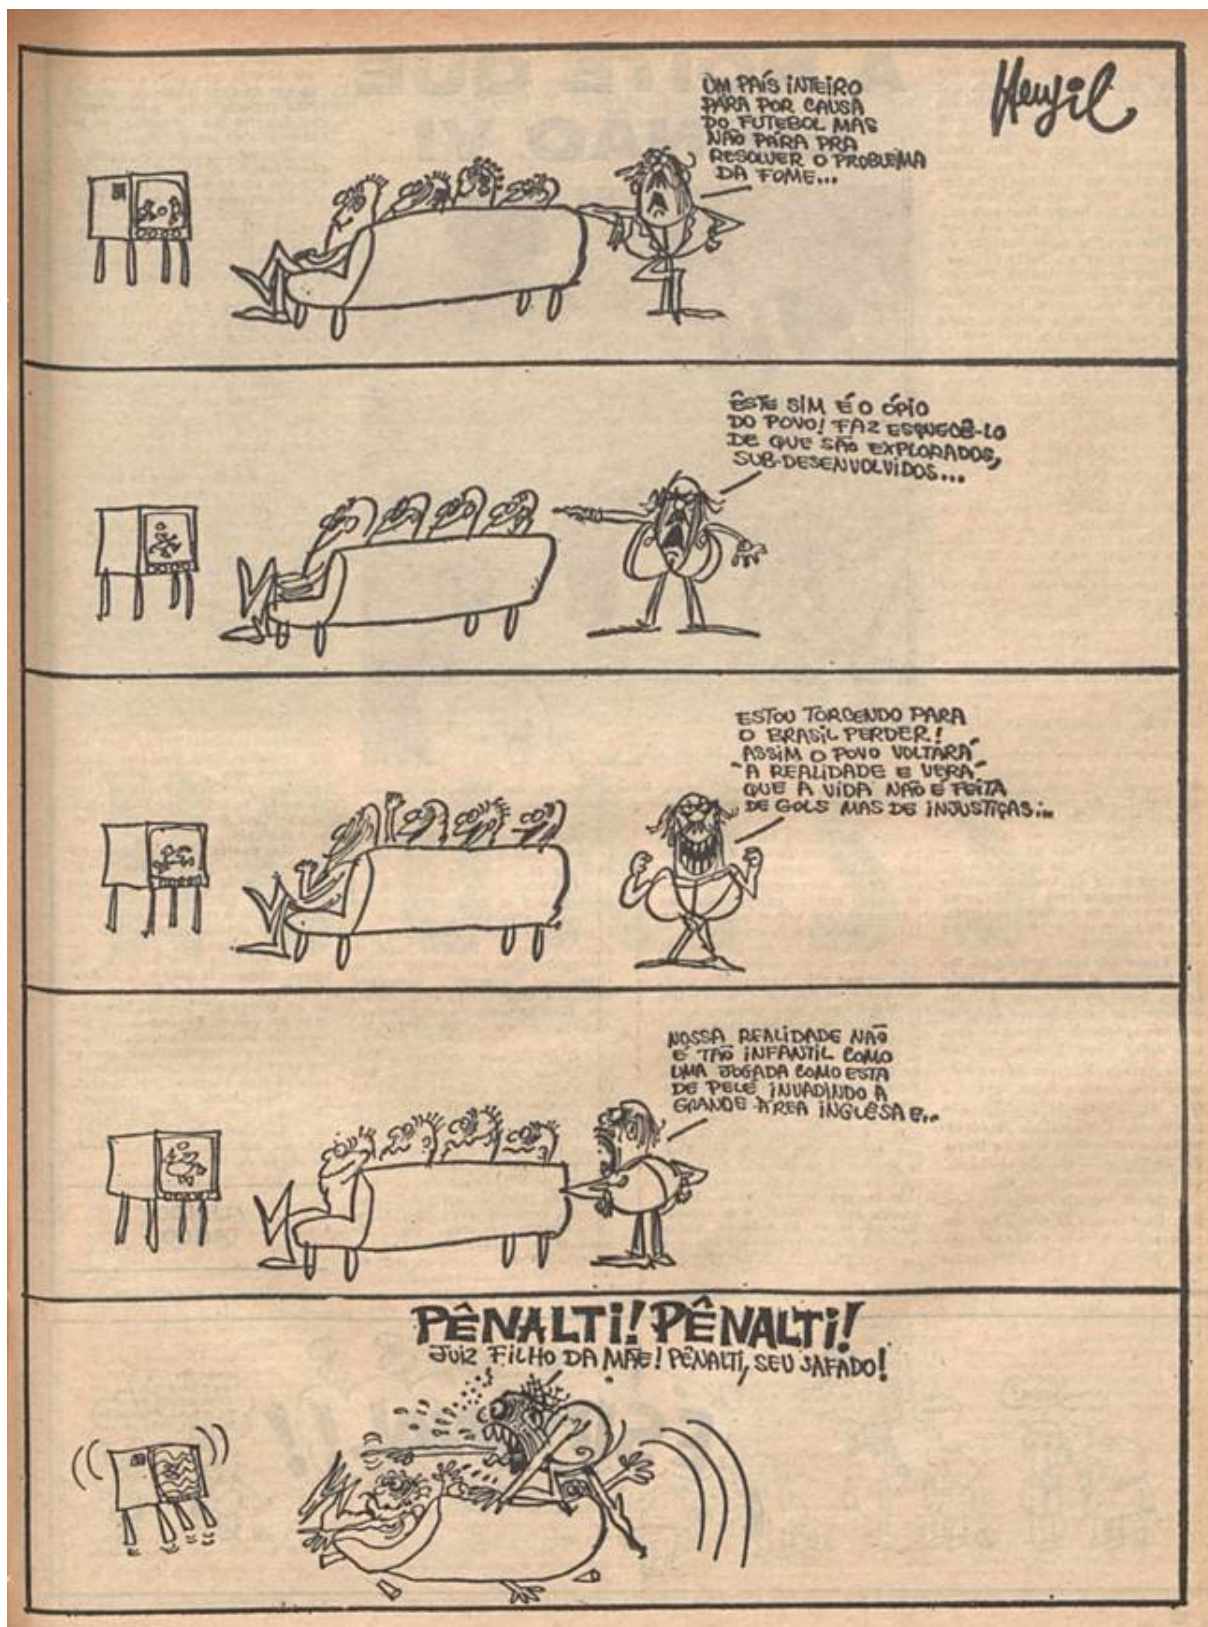 Henfil
UM PAÍS INTEIRO
PÁRA POR CAUSA
DO FUTEBOL MAS
NÃO PÁRA PRA
RESOLVER O PROBLEMA
DA FOME...
ÊSTE SIM É O ÓPIO
DO POVO! FAZ ESQUECÊ-LO
DE QUE SÃO EXPLORADOS,
SUB-DESENVOLVIDOS...
ESTOU TORCENDO PARA
O BRASIL PERDER!
ASSIM O POVO VOLTARÁ
À REALIDADE E VERÁ
QUE A VIDA NÃO É FEITA
DE GOLS MAS DE INJUSTIÇAS...
NOSSA REALIDADE NÃO
É TÃO INFANTIL COMO
UMA JOGADA COMO ESTA
DE PELÉ INVADINDO A
GRANDE ÁREA INGLÊSA E...
PÊNALTI! PÊNALTI!
JUIZ FILHO DA MÃE! PÊNALTI, SEU SAFADO!